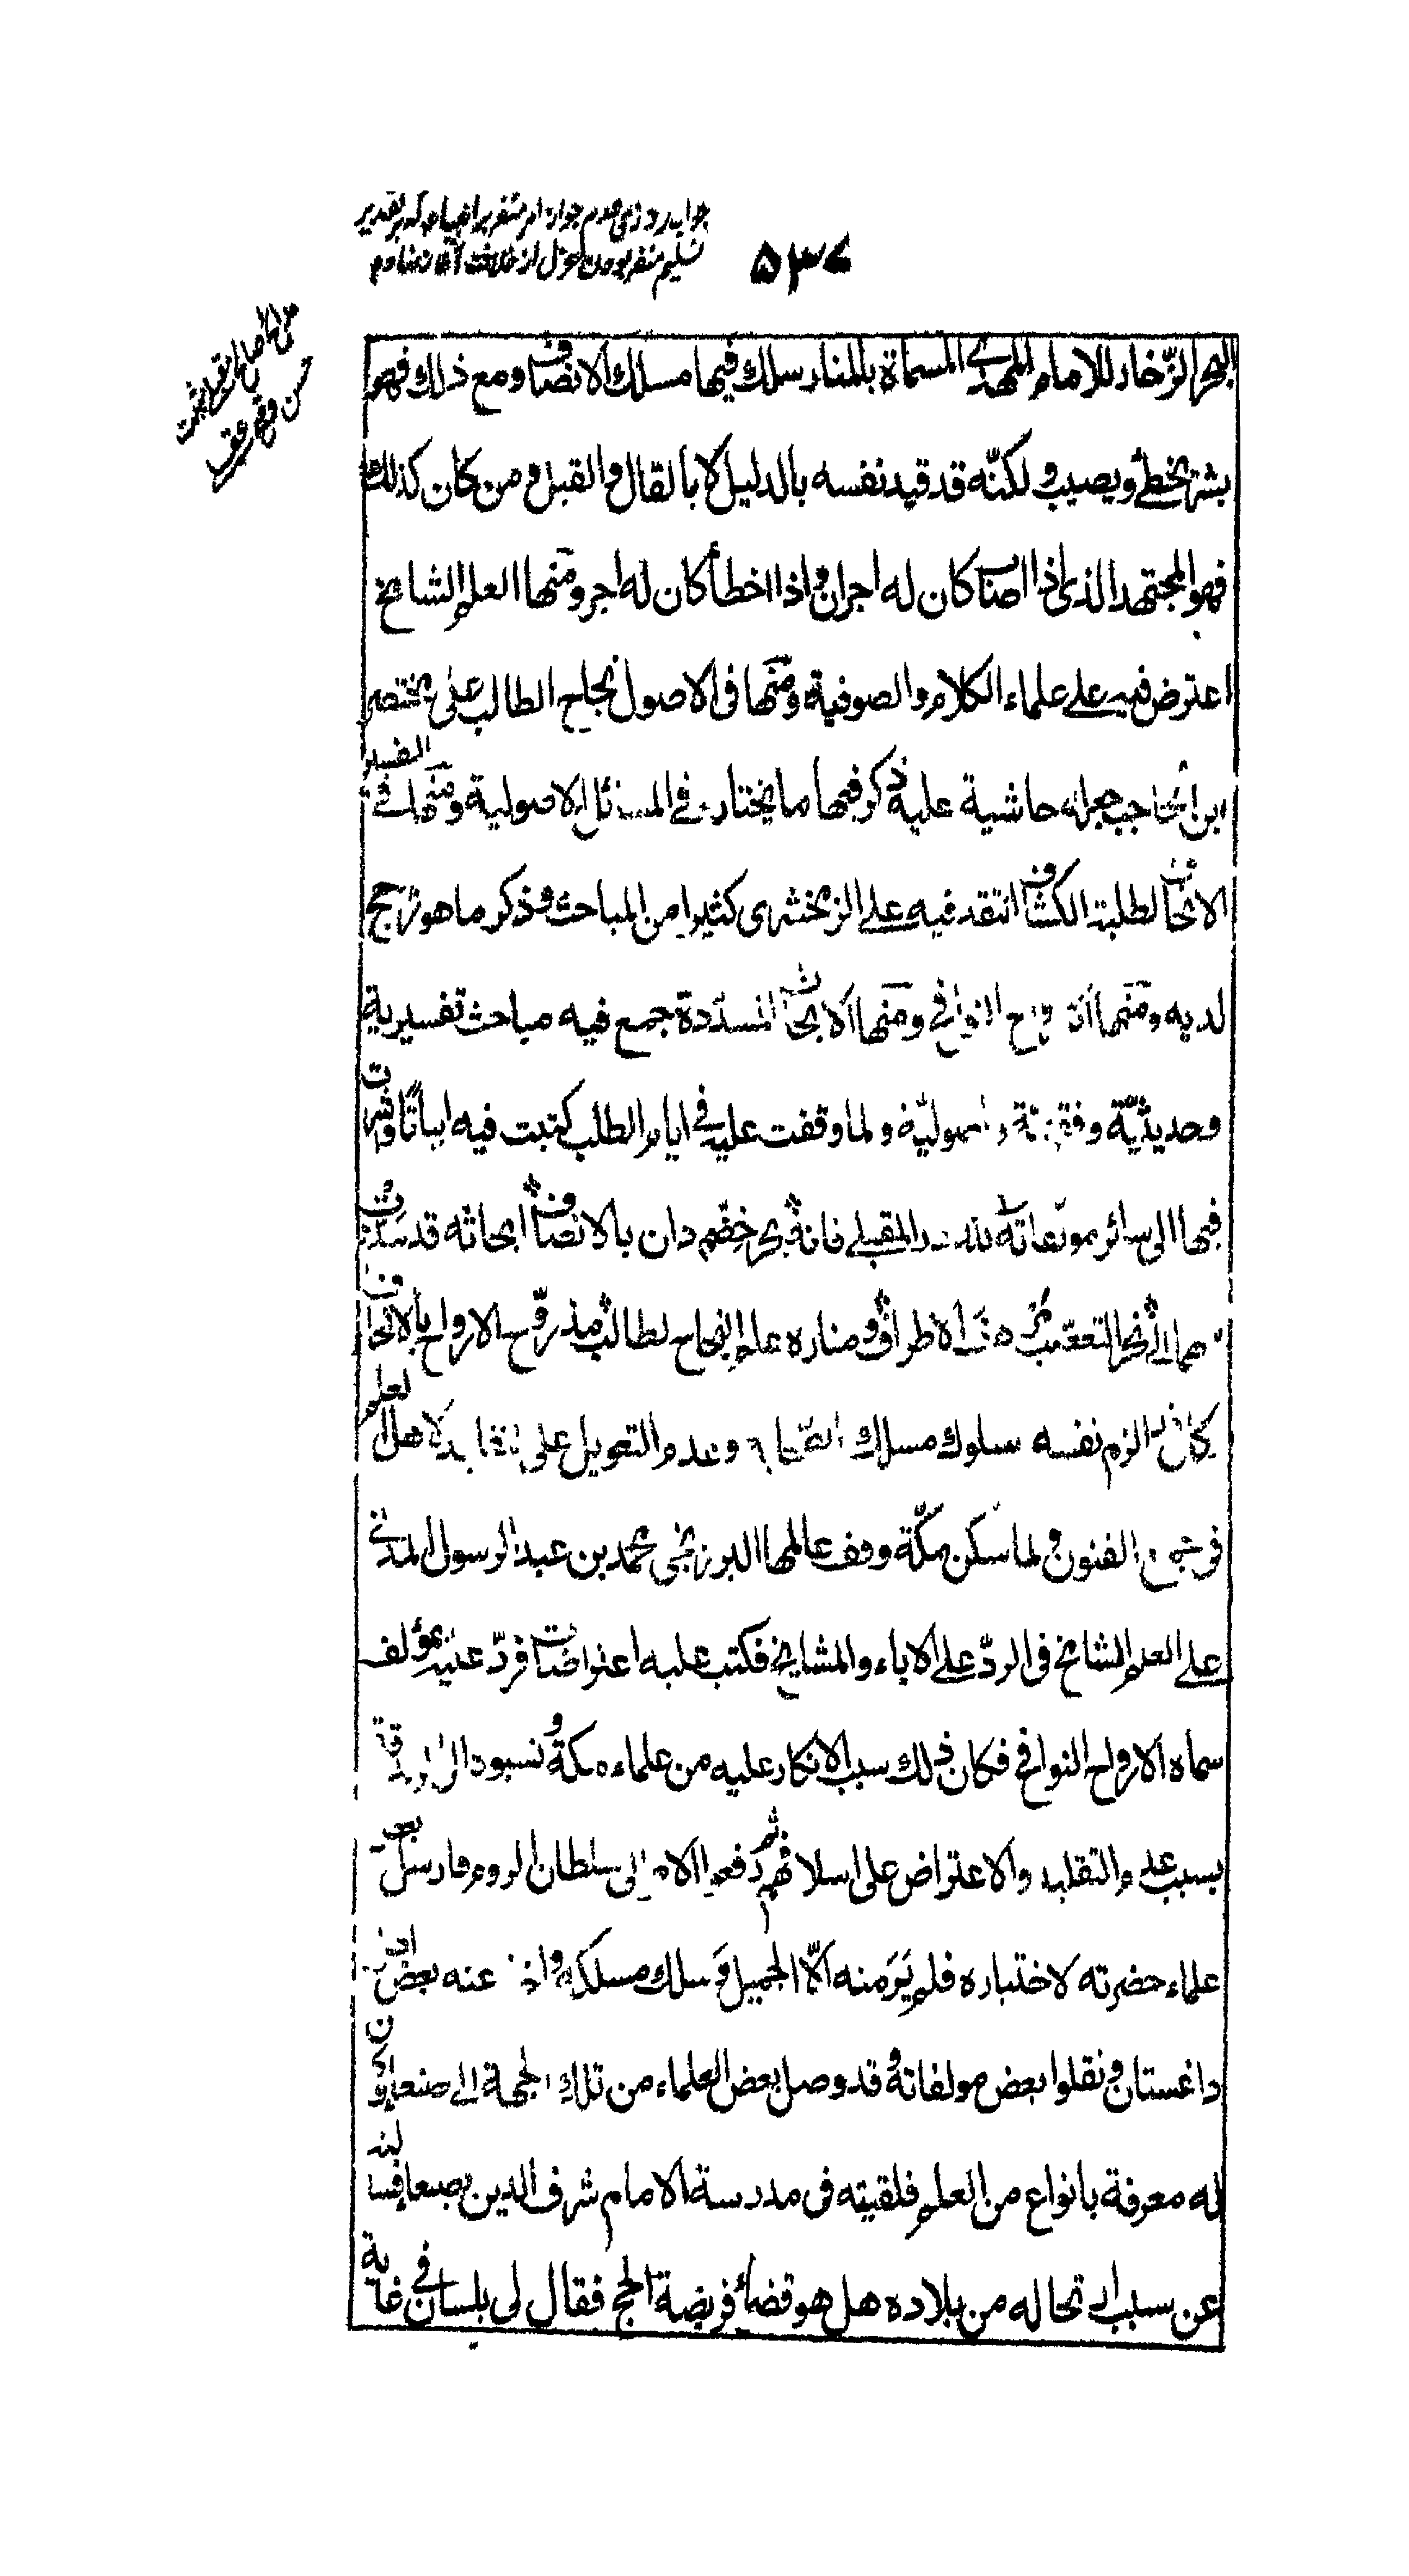 جواب رد دليل عدم جواز امر متنفر بر انبيا عليهم كه بر تقدير
تسليم منفر بودن عزل از خلافت
۵۳۷
حسن
البحر الزّخار للامام المهدى المسماة بالمنار سلك فيها مسلك الانصاف ومع ذلك فهو
بشر يخطئ ويصيب و لكنّه قد قيد نفسه بالدليل لا بالقال والقيل و من كان كذلك
فهو المجتهد الذى اذا اصاب كان له اجران و اذا اخطأ كان له اجر ومنها العلم الشامخ
اعترض فيه على علماء الكلام و الصوفية ومنها فى الاصول نجاح الطالب على مختصر
ابن الحاجب جعله حاشية عليه ذكر فيها ما يختاره في المسائل الاصولية ومنها في التفسير
الاتحاف لطلبة الكشاف انتقد فيه على الزمخشرى كثيرا من المباحث و ذكر ما هو راجح
لديه ومنها الارواح النوافخ ومنها الابحاث المسدّدة جمع فيه مباحث تفسيرية
وحديثيّة وفقهيّة و اصوليّة ولما وقفت عليه في ايام الطلب كتبت فيه ابياتًا واشرت
فيها الى سائر مولفاته لله در المقبلي فانه بحر خضّم دان بالانصاف ابحاثه قد سدّدت
سهما الى نحر التعصّب مرهف الاطراف و مناره علم النجاح لطالب مذ روّح الارواح بالاتحاف
كان قد الزم نفسه سلوك مسلك الصّحابة وعدم التعويل على تقليد لاهل العلم
فى جميع الفنون و لما سكن مكّة وقف عالمها البرزنجى محمد بن عبد الرسول المدنى
على العلم الشامخ فى الردّ على الاباء والمشايخ فكتب عليه اعتراضات فردّ عليه بمؤلف
سماه الارواح النوافخ فكان ذلك سبب الانكار عليه من علماء مكة و نسبوه الى الزندقة
بسبب عدم التقليد والاعتراض على اسلافهم ثم رفعوا الامر الى سلطان الروم فارسل بعض
علماء حضرته لاختباره فلم يَرَ منه الّا الجميل وَ سلك مسلكه و اخذ عنه بعض اهل
داغستان و نقلوا بعض مولفاته و قد وصل بعض العلماء من تلك الجهة الى صنعاء وكان
له معرفة بانواع من العلم فلقيته فى مدرسة الامام شرف الدين بصنعا فسالته
عن سبب ارتحاله من بلاده هل هو قضاء فريضة الحج فقال لى بلسان في غاية